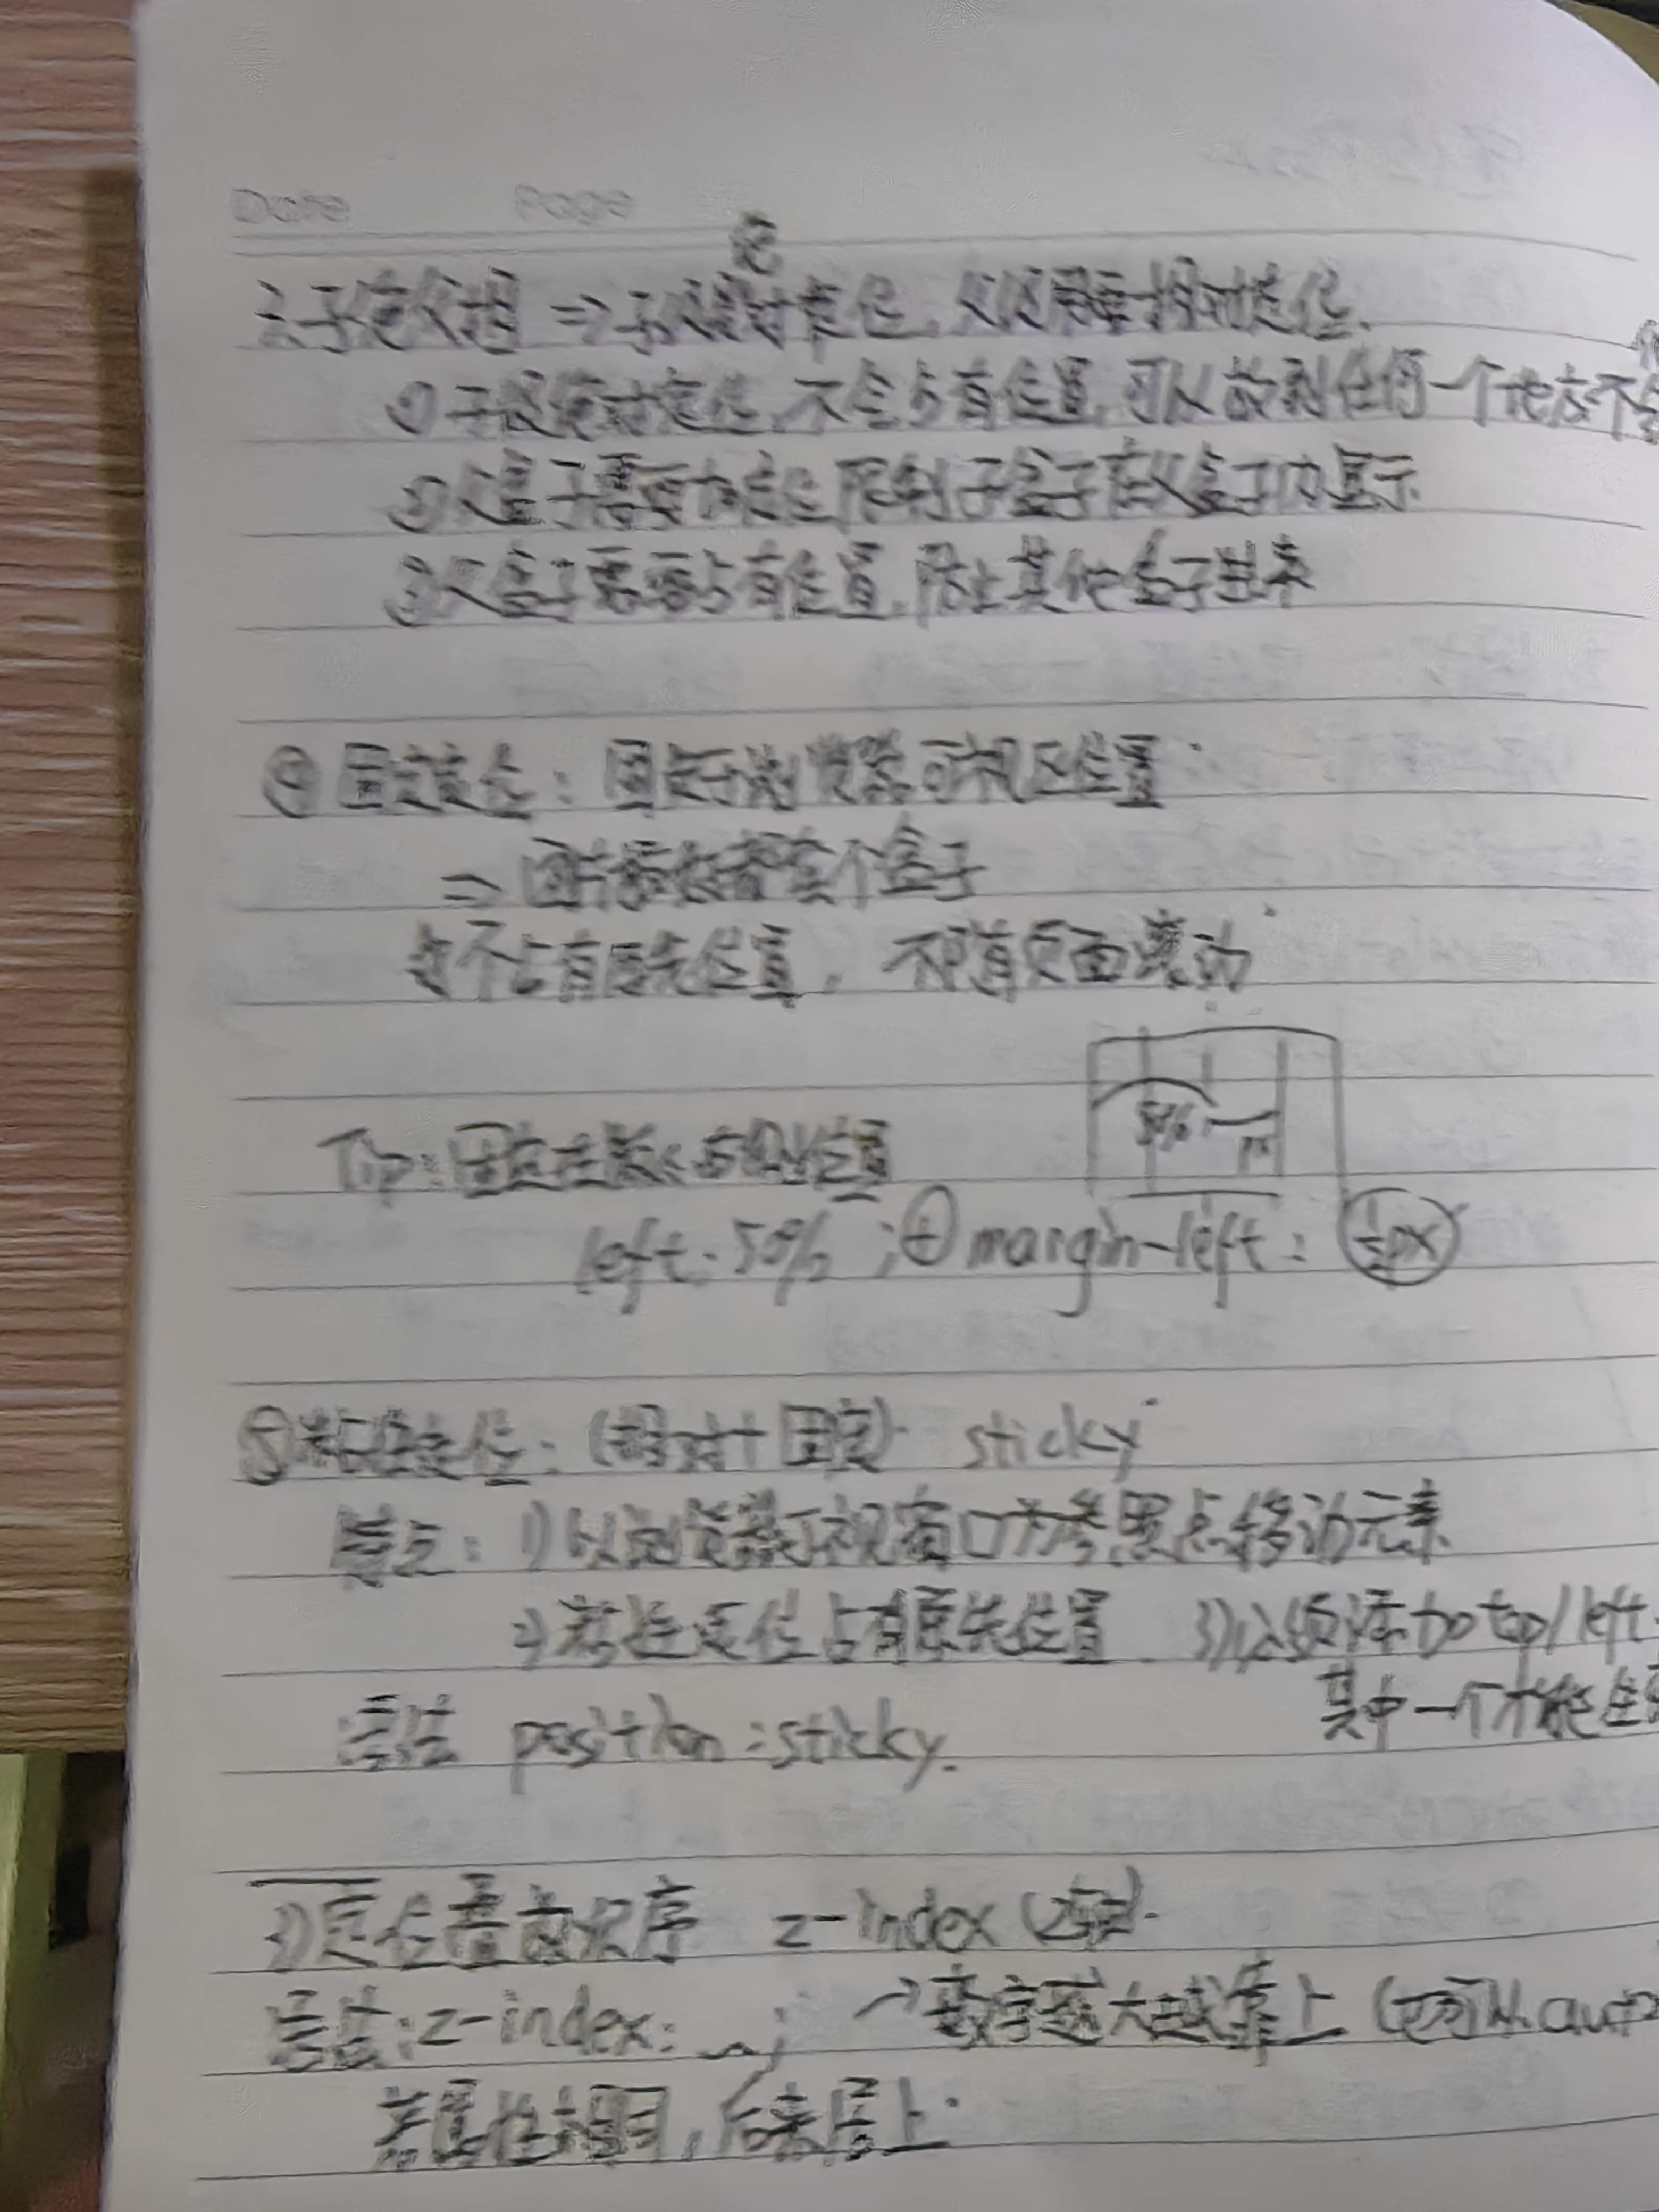 Date Page
绝
子绝父相 ⇒ 子级绝对定位,父级需要相对定位.
① 子级绝对定位,不会占有位置,可以放到任何一个地方不会
② 父盒子需要加定位限制子盒子在父盒子内显示
③ 父盒子需要占有位置,防止其他盒子
④ 固定定位:固定于浏览器可视区位置
⇒ 盒子
不占有原先位置, 不随页面滚动
50%
Tip:固定在版心右侧位置
left:50% ;⊕ margin-left: ½px
⑤ 粘性定位:(相对+固定) sticky
特点:1)以浏览器可视窗口为参照点移动元素
2)粘性定位占有原先位置 3)必须添加 top/left
其中一个才能生
语法 position:sticky.
3)定位叠放次序 z-index
语法:z-index: ; → 数字越大越靠上(也可以auto
若属性相同,后来居上.